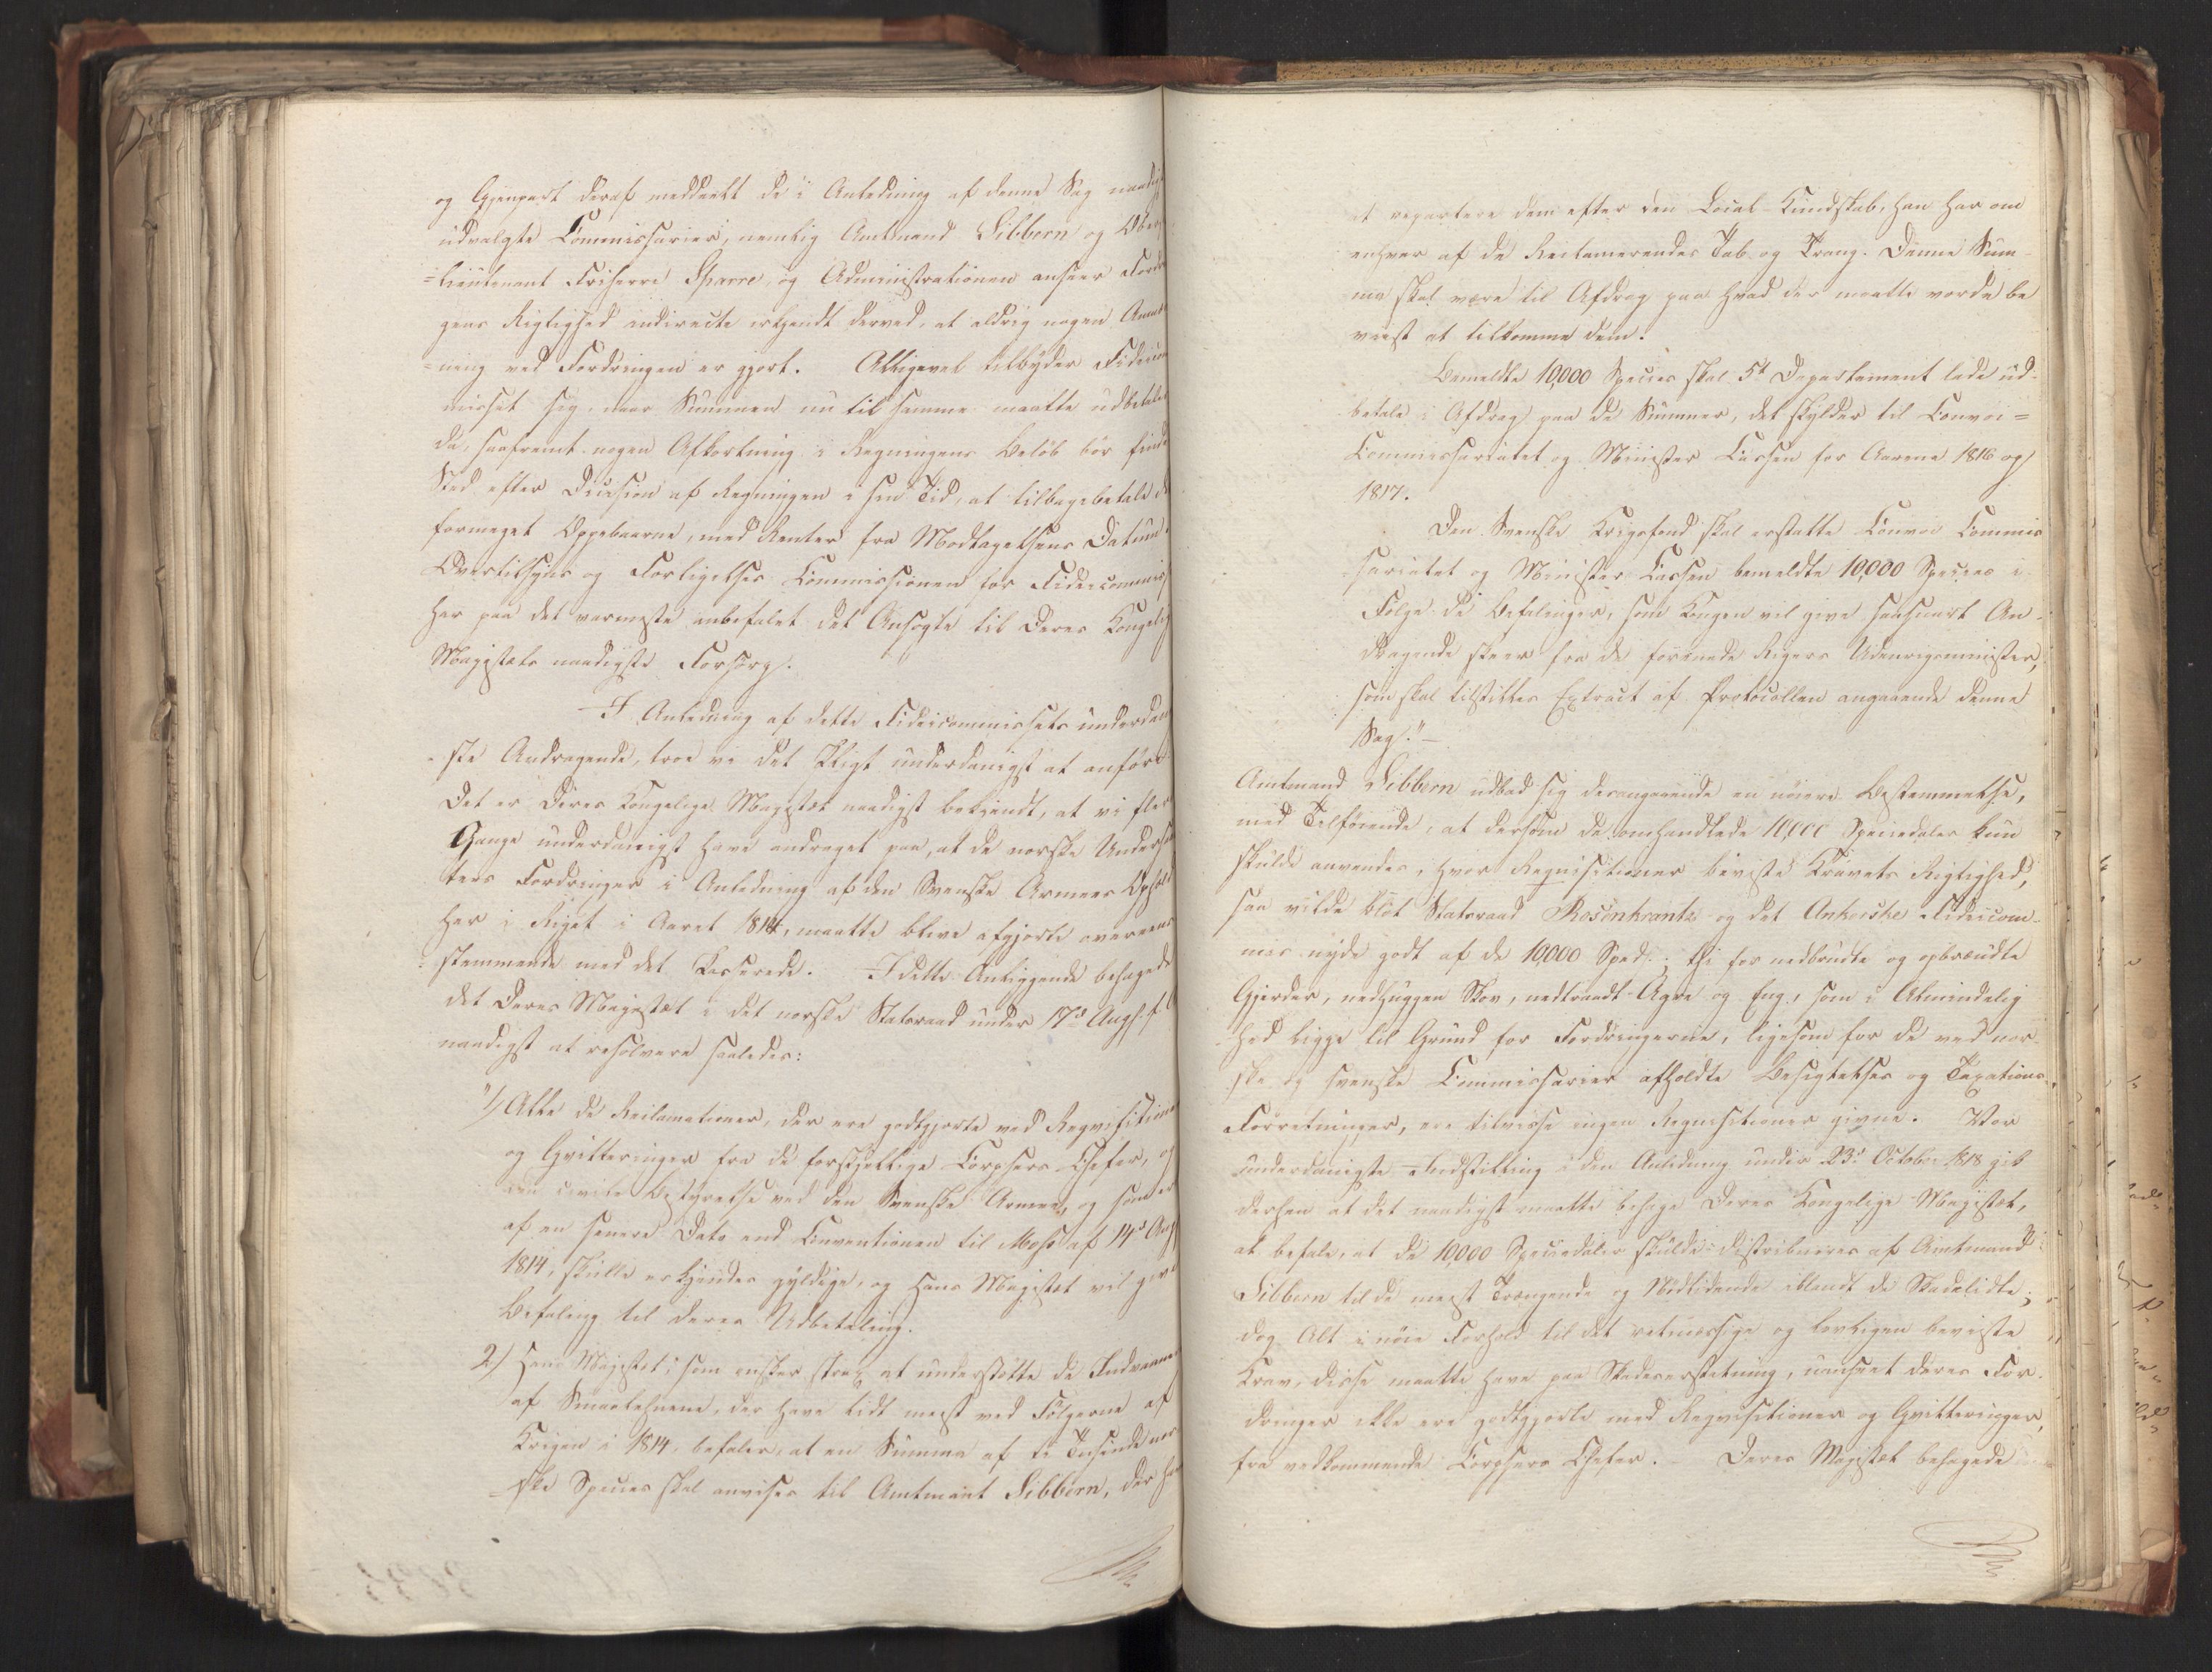 og Gjenpart deraf meddeelt de i Anledning af denne Sag naadigst
udvalgte Commissarier, nemlig Amtmand Sibbern og Oberst
=lieutenant Friherre Sparre, og Administrationen anseer Fordrin
gens Rigtighed indirecte erkjendt derved, at aldrig nogen Anmærk
=ning ved Fordringen er gjort. Alligevel tilbyder Fideicom
misset sig, naar Summen nu til samme maatte udbetales
da, saafremt nogen Afkortning i Regningens Beløb bør finde
Sted efter Decision af Regningen i sin Tid, at tilbagebetale det
formeget Oppebaarne, med Renter fra Modtagelsens Datum.
Overtilsyns og Forligelses Commissionen for Fideicommiss
har paa det varmeste anbefalet det Ansøgte til Deres Kongelige
Majestæts naadigste Forsorg.
I Anledning af dette Fideicommissets underdanig
=ste Andragende, troe vi det Pligt underdanigst at anføre
Det er Deres Kongelige Majestæt naadigst bekjendt, at vi flere
Gange underdanigst have andraget paa, at de norske Undersaat
ters Fordringer i Anledning af den Svenske Armees Ophold
her i Riget i Aaret 1814, maatte blive afgjorte overeens
=stemmende med det Passerede. I dette Anliggende behagede
det Deres Majestæt i det norske Statsraad under 17d Augst f. A.
naadigst at resolvere saaledes:
"1) Alle de Reclamationer, der ere godtgjorte ved Reqvisitioner
og Qvitteringer fra de forskjellige Corpsers Chefer, og
den civile Bestyrelse ved den Svenske Armee, og som er
af en senere Dato end Conventionen til Moss af 14d Augst
1814, skulle erkjendes gyldige, og Hans Majestæt vil give
Befaling til deres Udbetaling.
2) Hans Majestæt, som ønsker strax at understøtte de Indvaanere
af Smaalehnene, der have lidt meest ved Følgerne af
Krigen i 1814, befaler, at en Summa af ti Tusinde nor
=ske Species skal anvises til Amtmant Sibbern, der har
at repartere dem efter den Local-Kundskab, han har om
enhver af de Reclamerendes Tab og Trang. Denne Sum
ma skal være til Afdrag paa hvad der maatte vorde be
viist at tilkomme dem.
Bemeldte 10,000 Species skal 5t Departement lade ud-
betale i Afdrag paa de Summer, det skylder til Convoi=
Commissariatet og Minister Cassen for Aarene 1816 og
1817.
Den Svenske Krigsfond skal erstatte Convoi Commis
sariatet og Minister Cassen bemeldte 10,000 Species i
Følge de Befalinger, som Kongen vil give saasnart An-
dragende skeer fra de forenede Rigers Udenrigsminister,
som skal tilstilles Extract af Protocollen angaaende denne
Sag."—
Amtmand Sibbern udbad sig desangaaende en nøiere Bestemmelse,
med Tilføiende, at dersom de omhandlede 10,000 Speciedaler kun
skulde anvendes, hvor Requisitioner beviste Kravets Rigtighed,
saa vilde blot Statsraad Rosenkrantz og det Ankerske Fideicom-
mis nyde godt af de 10,000 Spd.; thi for nedbrudte og opbrændte
Gjerder, nedhuggen Skov, nedtraadt Agre og Eng, som i Almindelig
hed ligge til Grund for Fordringerne, ligesom for de ved nor-
ske og svenske Commissarier afholdte Besigtelses og Taxations-
Forretninger, ere tilvisse ingen Requisitioner givne. Vor
underdanigste Indstilling i den Anledning under 23d October 1818 gik
derhen at det naadigst maatte behage Deres Kongelige Majestæt,
at befale, at de 10,000 Speciedaler skulde distribueres af Amtmand
Sibbern til de meest Trængende og Nødlidende iblandt de Skadelidte;
dog Alt i nøie Forhold til det retmæssige og lovligen beviste
Krav, disse maatte have paa Skadeserstatning, uanseet deres For-
dringer ikke ere godtgjorte med Reqvisitioner og Qvitteringer,
fra vedkommende Corpsers Chefer. – Deres Majestæt behagede